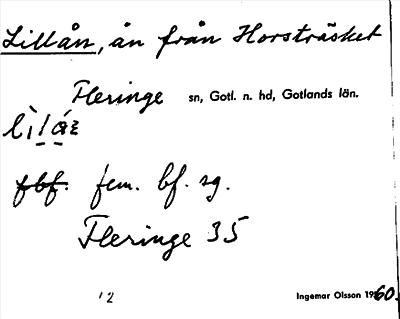 Lillån, ån från Horsträsket
Fleringe sn, Gotl. n. hd, Gotlands län.
fbf. fem. bf. sg.
Fleringe 35
12
Ingemar Olsson 1960.